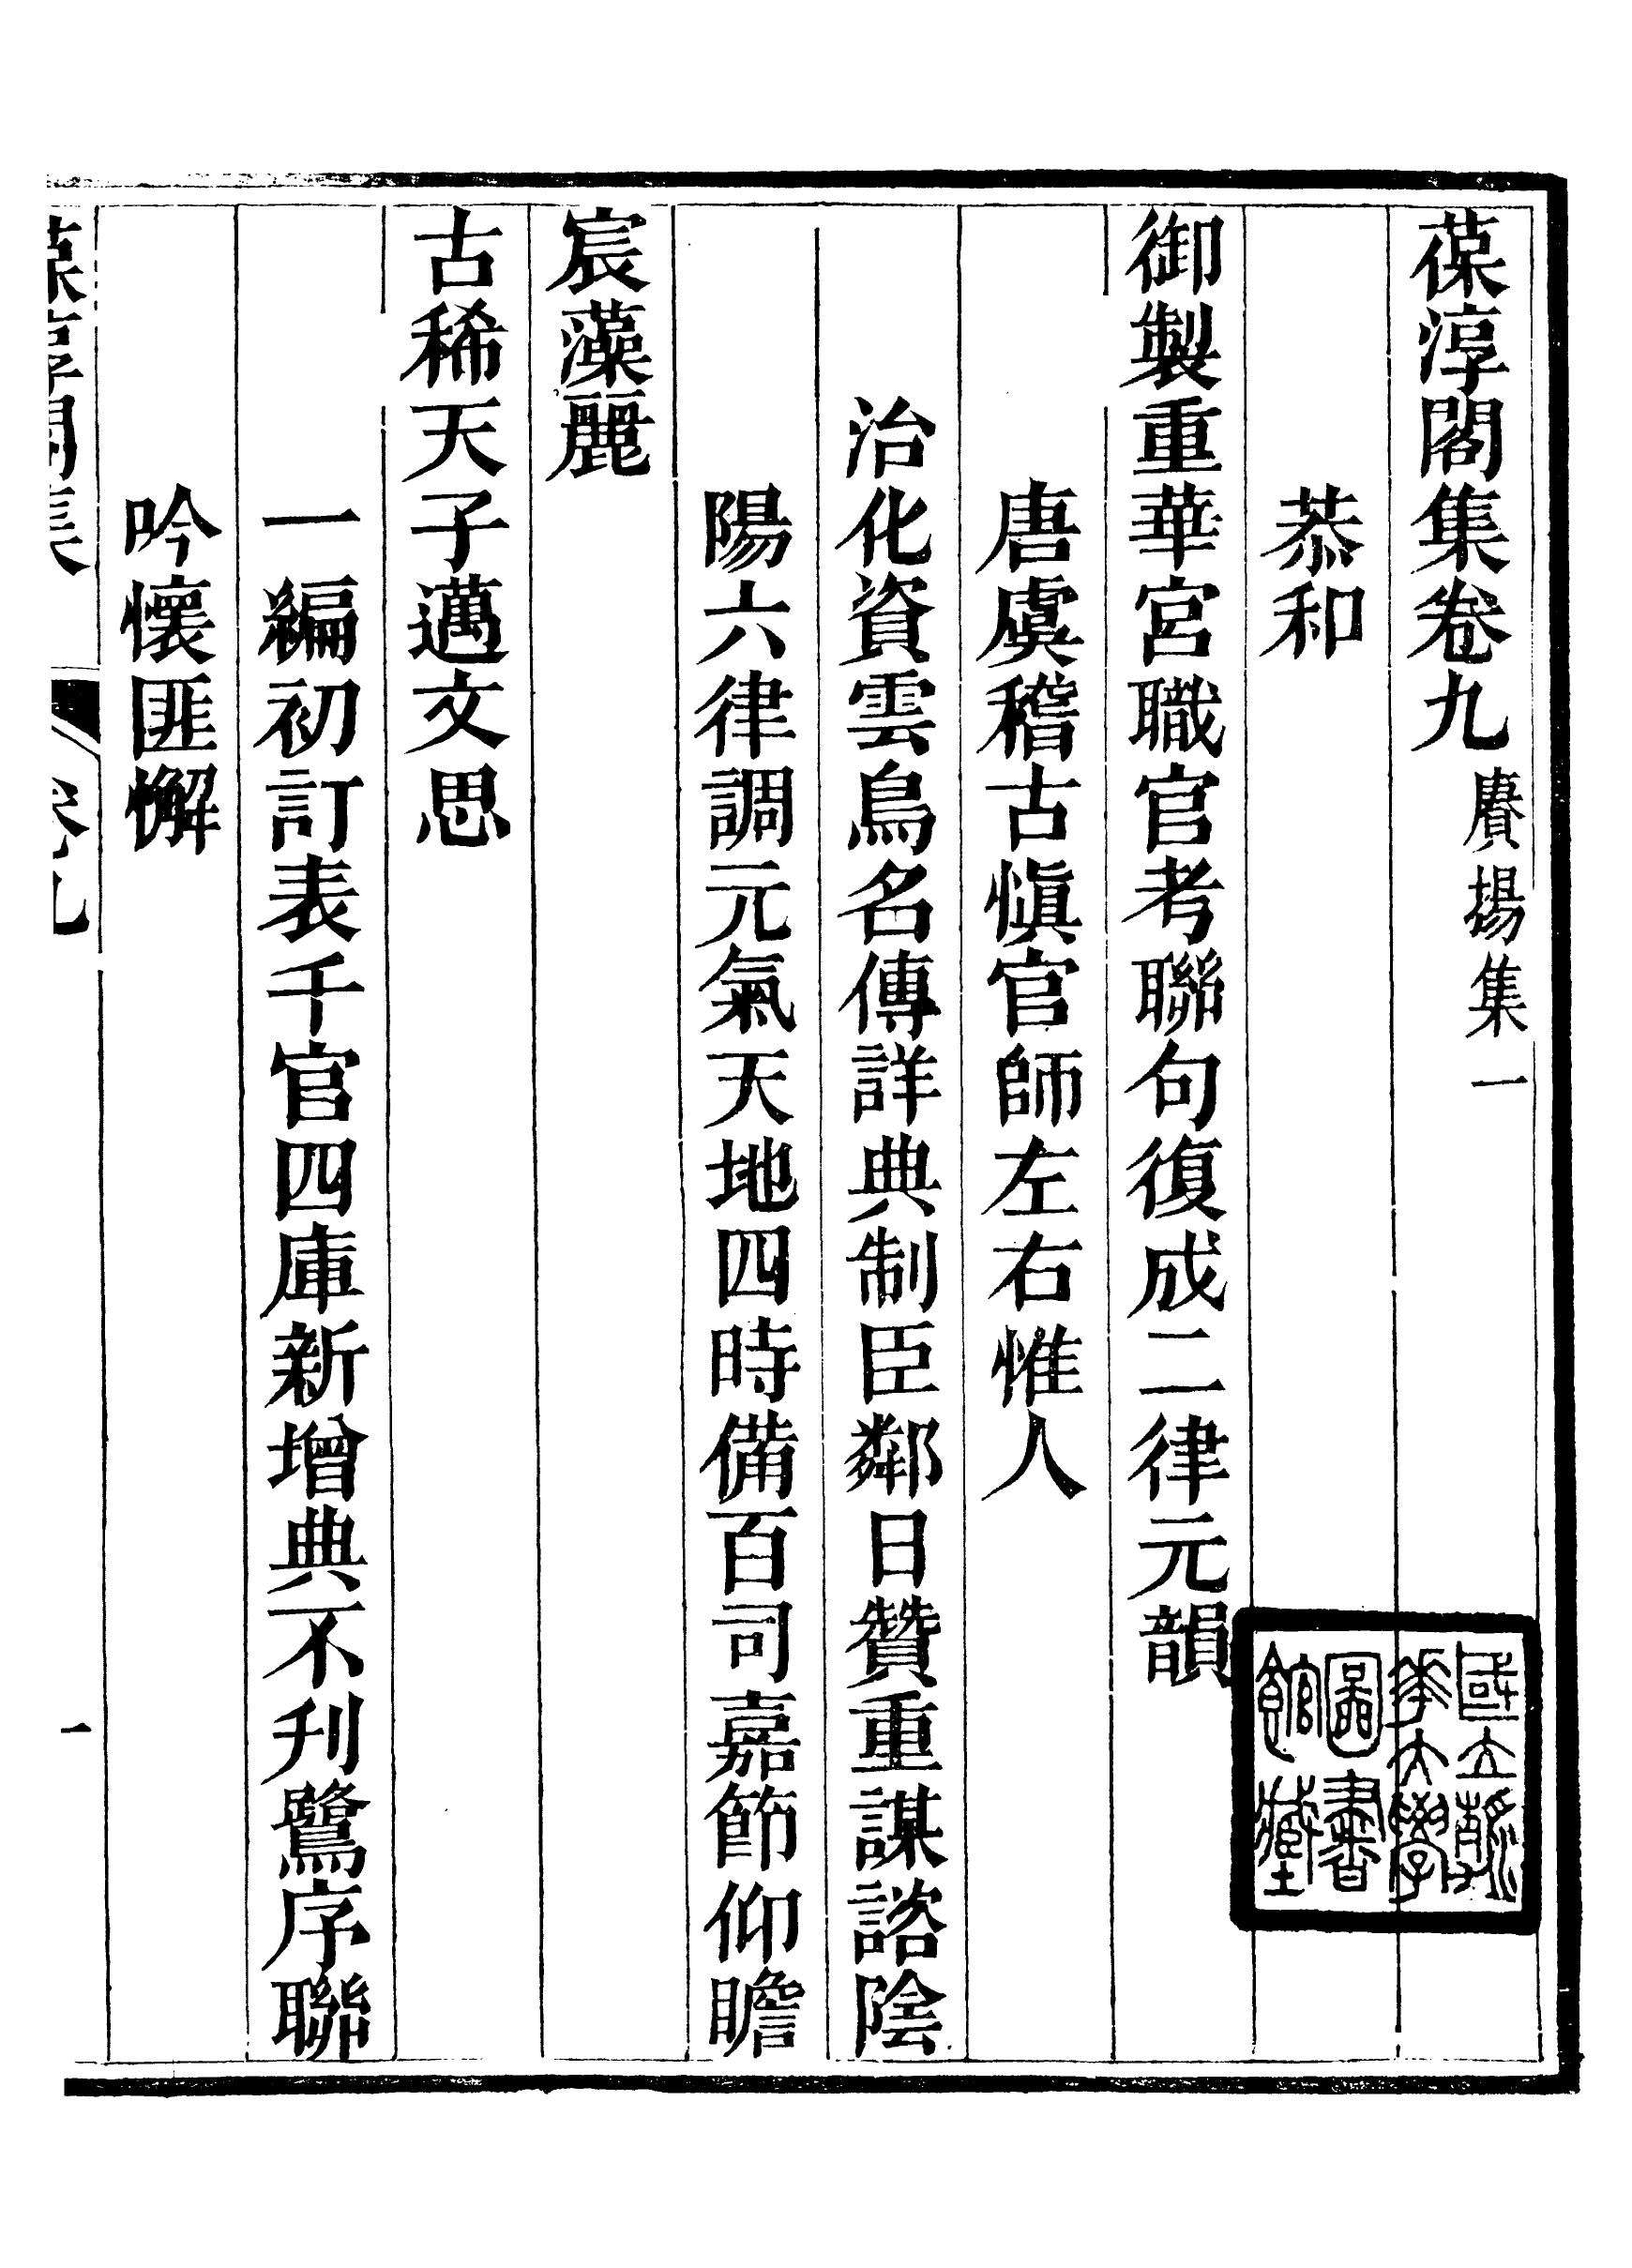 葆淳閣集卷九 賡揚集一
恭和
御製重華宮職官考聯句復成二律元韻
唐虞稽古愼官師左右惟人
治化資雲鳥名傳詳典制臣鄰日贊重謀諮陰
陽六律調元氣天地四時備百司嘉節仰瞻
宸藻麗
古稀天子邁文思
一編初訂表千官四庫新增典不刋鷺序聯
吟懷匪懈
葆淳閣集 卷九 一
國立清
華大學
圖書
館藏